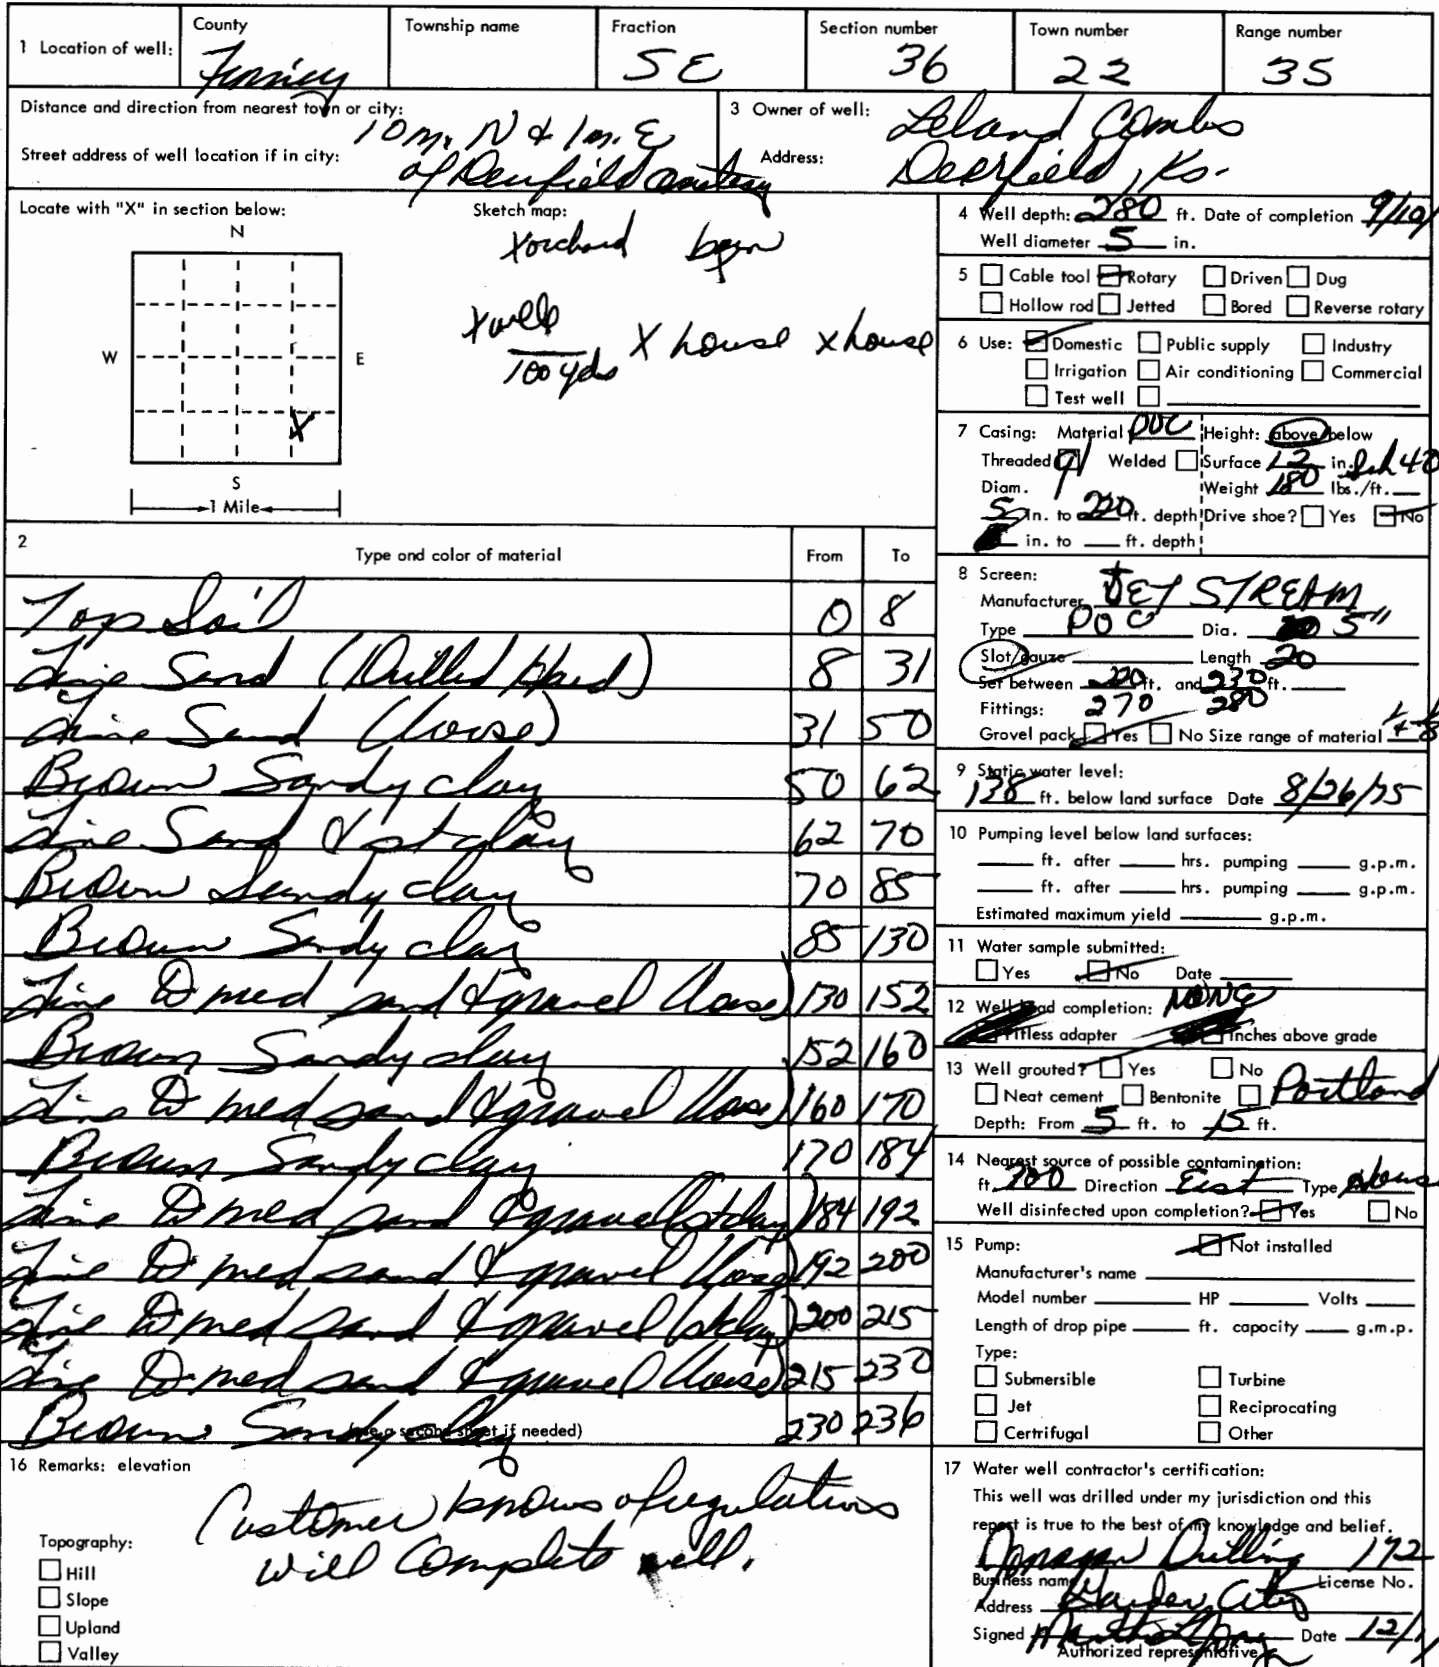 1 Location of well:
County
Finney
Township name
Fraction
SE
Section number
36
Town number
22
Range number
35
Distance and direction from nearest town or city:
10 m. N & 1 m. E
Street address of well location if in city:
of Deerfield
3 Owner of well: Leland Combs
Address: Deerfield, Ks.
Locate with "X" in section below:
N
W
E
X
S
1 Mile
Sketch map:
X orchard barn
X
X well
100 yds
X house x house
4 Well depth: 280 ft. Date of completion 9/10/
Well diameter 5 in.
5 Cable tool Rotary Driven Dug
Hollow rod Jetted Bored Reverse rotary
6 Use: Domestic Public supply Industry
Irrigation Air conditioning Commercial
Test well
7 Casing: Material Height: above/below
Threaded Welded Surface 12 in. Sch 40
Diam. Weight 180 lbs./ft.
5 in. to 220 ft. depth Drive shoe? Yes No
in. to ft. depth
8 Screen:
Manufacturer JET STREAM
Type Dia. 5"
Slot/gauze Length 20
Set between 220 ft. and 230 ft.
Fittings: 270 280
Gravel pack Yes No Size range of material
9 Static water level:
138 ft. below land surface Date 8/26/75
10 Pumping level below land surfaces:
ft. after hrs. pumping g.p.m.
ft. after hrs. pumping g.p.m.
Estimated maximum yield g.p.m.
11 Water sample submitted:
Yes No Date
12 Well head completion: NONE
Pitless adapter Inches above grade
13 Well grouted? Yes No
Neat cement Bentonite Portland
Depth: From 5 ft. to 15 ft.
14 Nearest source of possible contamination:
ft. Direction East Type House
Well disinfected upon completion? Yes No
15 Pump: Not installed
Manufacturer's name
Model number HP Volts
Length of drop pipe ft. capacity g.m.p.
Type:
Submersible Turbine
Jet Reciprocating
Certrifugal Other
2 Type and color of material From To
Top Soil 0 8
Fine Sand (Drilled Hard) 8 31
Fine Sand (loose) 31 50
Brown Sandy clay 50 62
Fine Sand & st clay 62 70
Brown Sandy clay 70 85
Brown Sandy clay 85 130
Fine to med sand & gravel (loose) 130 152
Brown Sandy clay 152 160
Fine to med sand & gravel (loose) 160 170
Brown Sandy clay 170 184
Fine to med sand & gravel (st clay) 184 192
Fine to med sand & gravel (loose) 192 200
Fine to med sand & gravel (st clay) 200 215
Fine to med sand & gravel (loose) 215 230
Brown Sandy clay 230 236
(use a second sheet if needed)
16 Remarks: elevation
Customer knows of regulations
will complete well.
Topography:
Hill
Slope
Upland
Valley
17 Water well contractor's certification:
This well was drilled under my jurisdiction and this
report is true to the best of my knowledge and belief.
Drilling 192
Business name License No.
Address Garden City
Signed Date 12/1/
Authorized representative